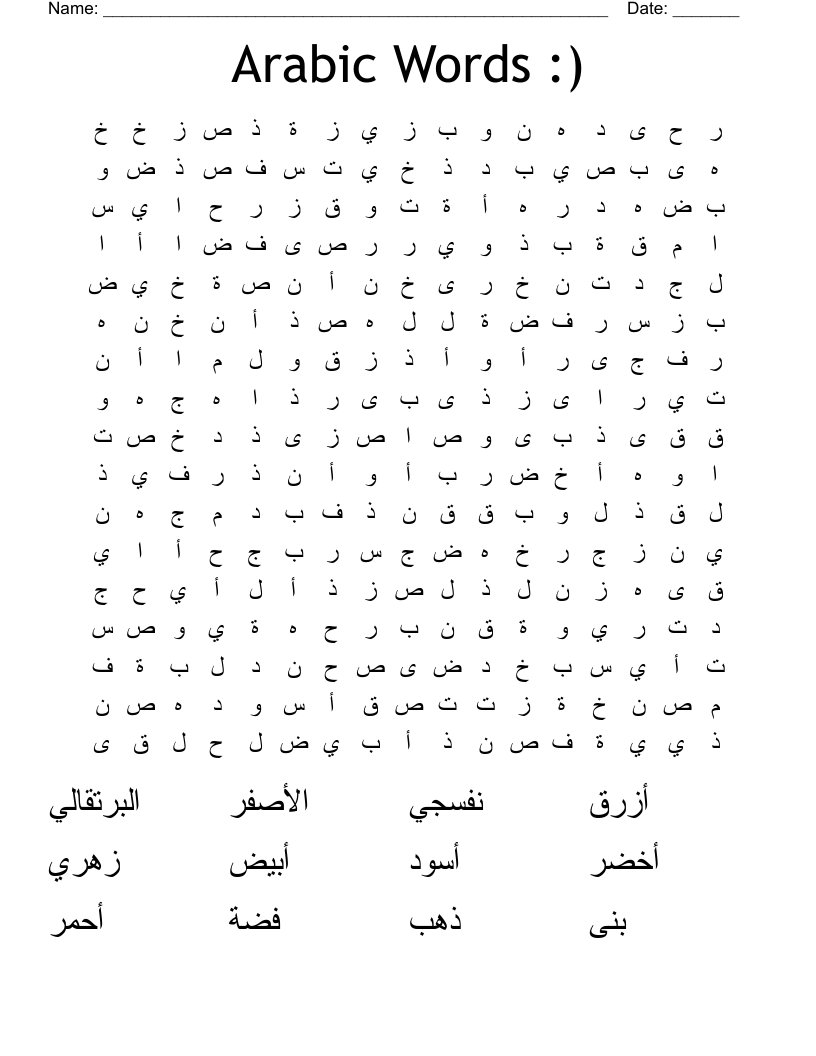 Name: ______________________________________________________ Date: _______
Arabic Words :)
ر ح ى د ه ن و ب ز ي ز ة ذ ص ز خ خ
ه ى ب ص ي ب د ذ خ ي ت س ف ص ذ ض و
ب ض ه د ر ه أ ة ت و ق ز ر ح ا ي س
ا م ق ة ب ذ و ي ر ر ص ى ف ض ا أ ا
ل ج د ت ن خ ر ى خ ن أ ن ص ة خ ي ض
ب ز س ر ف ض ة ل ل ه ص ذ أ ن خ ن ه
ر ف ج ى ر أ و أ ذ ز ق و ل م ا أ ن
ت ي ر ا ى ز ذ ى ب ى ر ذ ا ه ج ه و
ق ق ى ذ ب ى و ص ا ص ز ى ذ د خ ص ت
ا و ه أ خ ض ر ب أ و أ ن ذ ر ف ي ذ
ل ق ذ ل و ب ق ق ن ذ ف ب د م ج ه ن
ي ن ز ج ر خ ه ض ج س ر ب ج ح أ ا ي
ق ى ه ز ن ل ذ ل ص ز ذ أ ل أ ي ح ج
د ت ر ي و ة ق ن ب ر ح ه ة ي و ص س
ت أ ي س ب خ د ض ى ص ح ن د ل ب ة ف
م ص ن خ ة ز ت ت ص ق أ س و د ه ص ن
ذ ي ي ة ف ص ن ذ أ ب ي ض ل ح ل ق ى
أزرق نفسجي الأصفر البرتقالي
أخضر أسود أبيض زهري
بنى ذهب فضة أحمر